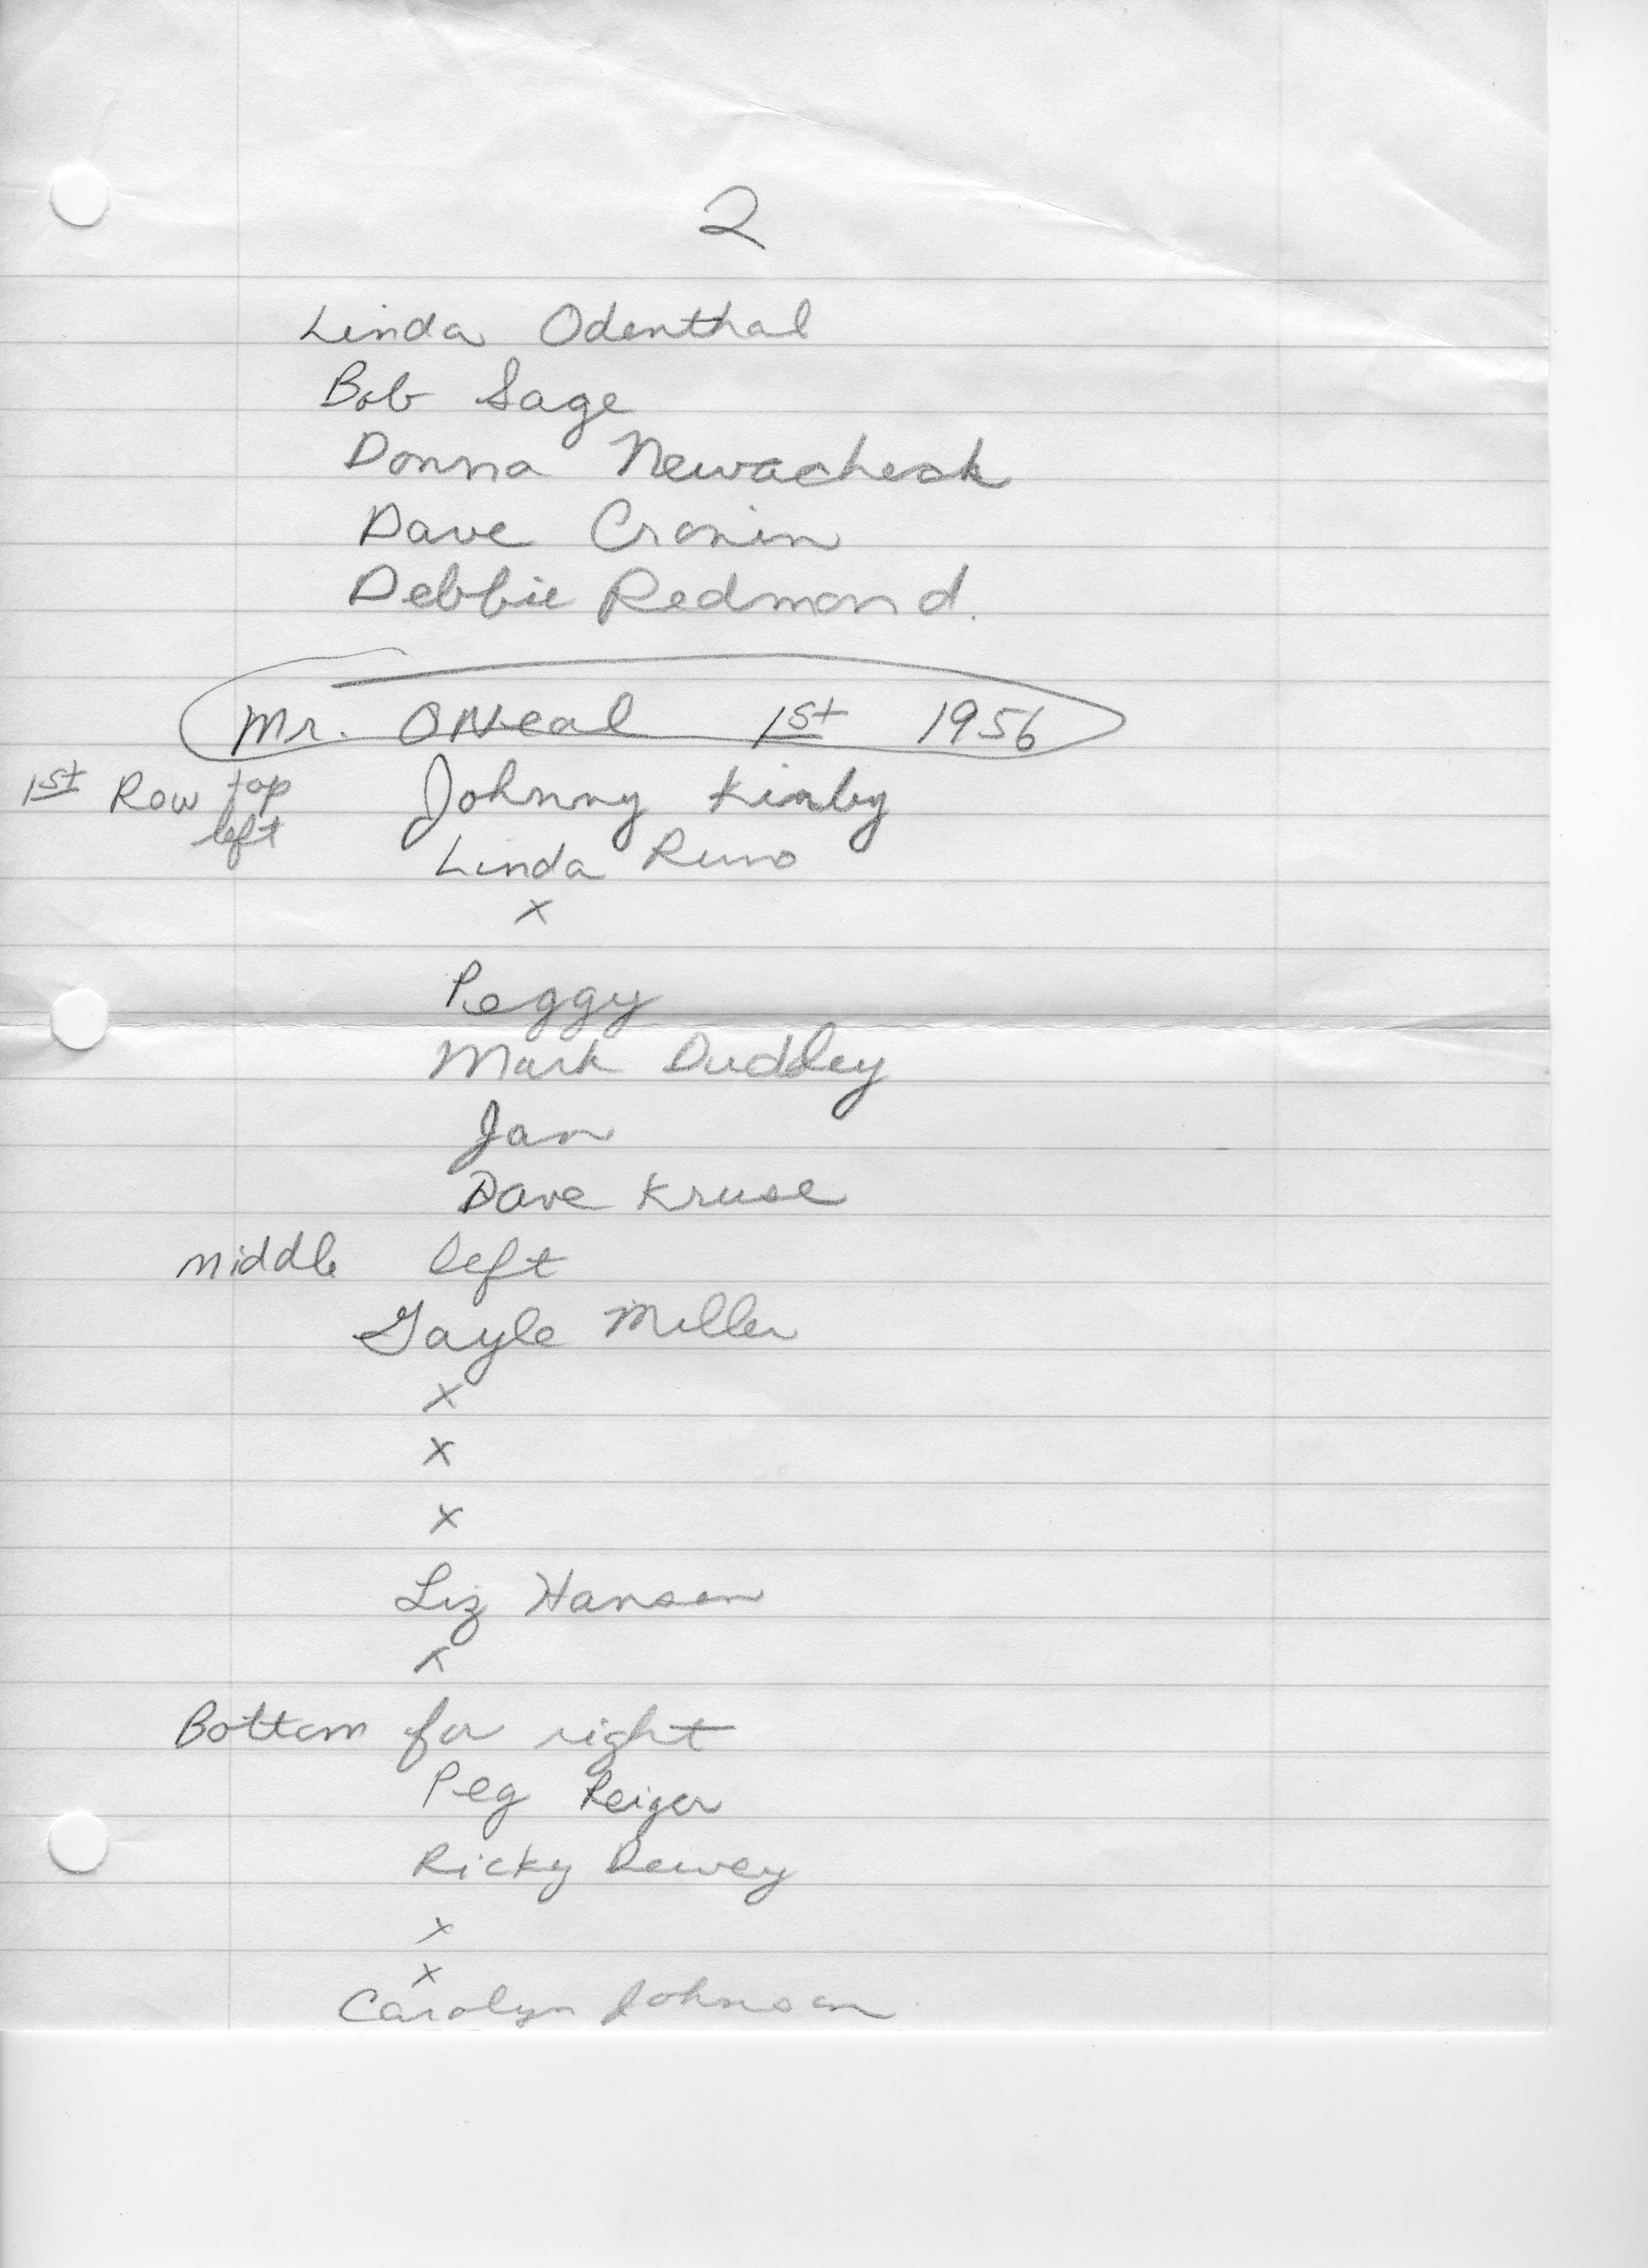 2
Linda Odenthal
Bob Sage
Donna Newacheck
Dave Cronin
Debbie Redmond.
Mr. ONeal 1st 1956
1st Row top left Johnny Kirby
Linda Runo
x
Peggy
Mark Duddley
Jan
Dave Kruse
middle left
Gayle Miller
x
x
x
Liz Hansen
x
Bottom far right
Peg Reiger
Ricky Dewey
x
x
Carolyn Johnson